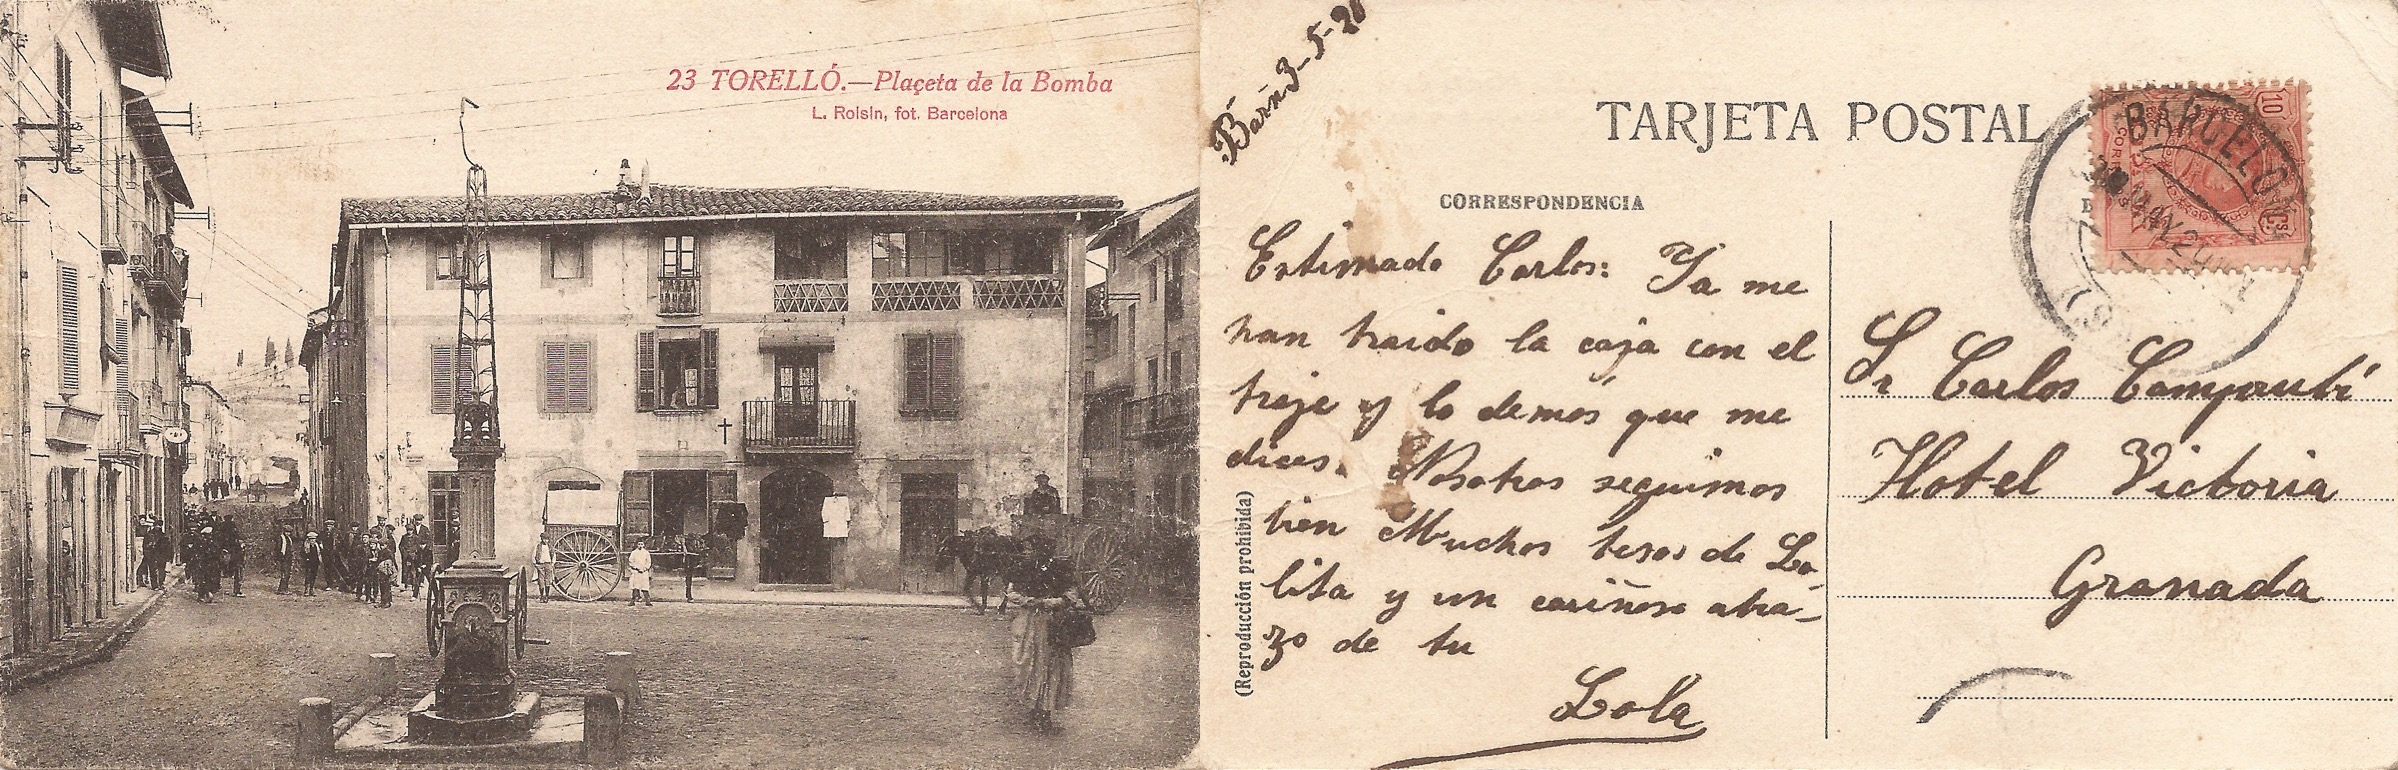 23 TORELLÓ.—Plaçeta de la Bomba
L. Roisin, fot. Barcelona
Barña 3-5-20
TARJETA POSTAL
CORRESPONDENCIA
Estimado Carlos: Ya me
han traido la caja con el
traje y lo demás que me
dices. Nosotros seguimos
bien Muchos besos de Lo-
lita y un cariñoso abra-
zo de tu
Lola
(Reproducción prohibida)
10
CORREOS
Cs
BARCELO
MAY 20
Sr Carlos Camprubí
Hotel Victoria
Granada